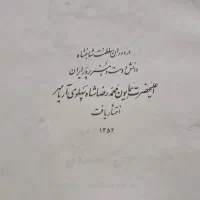 در دوران سلطنت شاهنشاه
دانش دوست و هنرپرور ایران
اعلیحضرت همایون محمد رضا شاه پهلوی آریامهر
انتشار یافت
۱۳۵۲